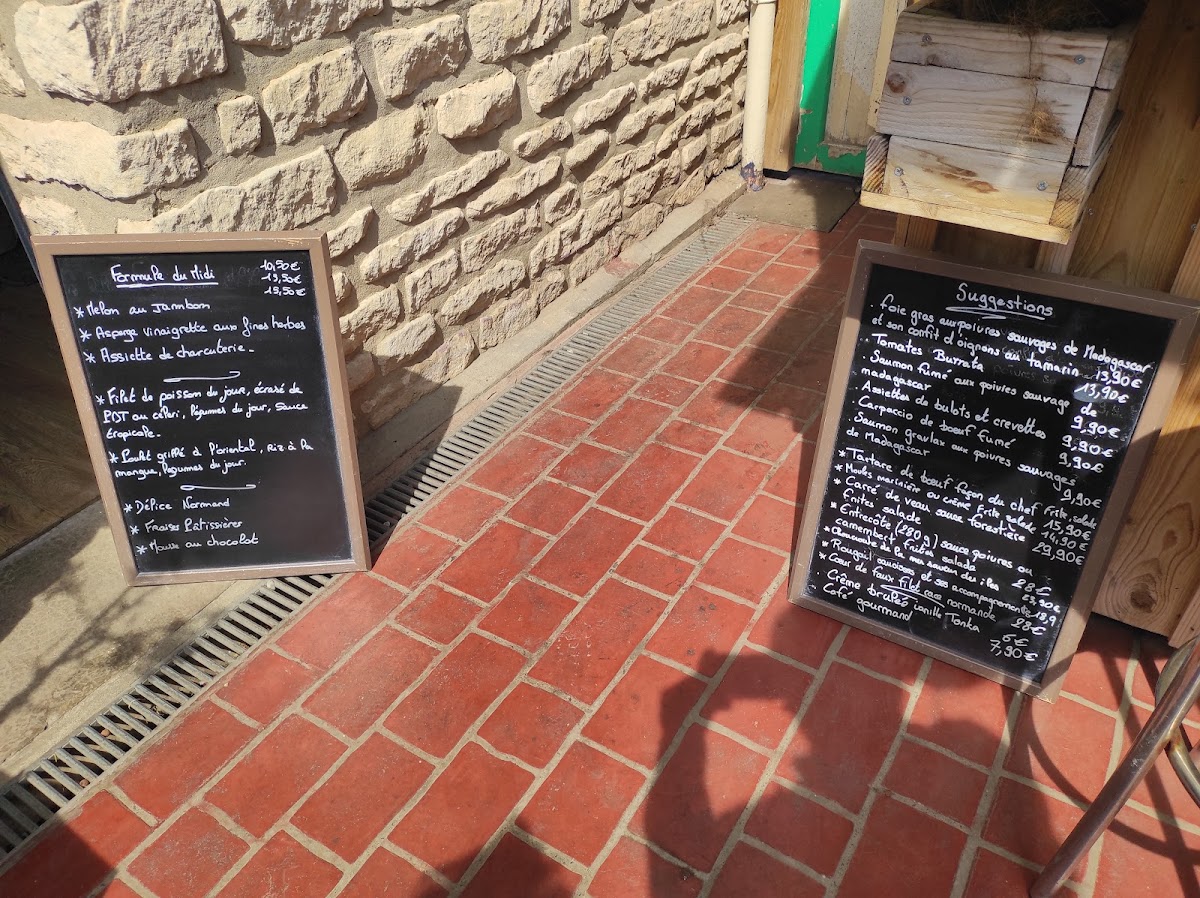 Formule du Midi
10,50€
13,50€
15,50€
* Melon au Jambon
* Asperge vinaigrette aux fines herbes
* Assiette de charcuterie.
* Filet de poisson du jour, écrasé de
PDT ou céleri, légumes du jour, sauce
tropicale.
* Poulet griffé à l'oriental, Riz à la
mangue, légumes du jour.
* Délice Normand
* Fraises Pâtissières
* Mousse au chocolat
Suggestions
. foie gras aux poivres sauvages de Madagascar
et son confit d'oignons au tamarin 13,90€
. Tomates Burrata 13,90€
. Saumon fumé aux poivres sauvage de
madagascar 9,90€
. Assiettes de bulots et crevettes 9,90€
. Carpaccio de bœuf fumé 9,90€
. Saumon gravlax aux poivres sauvages
de Madagascar 9,90€
* Tartare de bœuf façon du chef Frite, salade 15,90€
* Moules marinière ou crème Frite salade 14,90€
* Carré de veau sauce forestière
frites salade 29,90€
* Entrecôte (280g) sauce poivres ou
camembert, frites, salade 28€
* de la mer saveur des îles 23,90€
* Rougail saucisses et ses accompagnements 18,9
* Cœur de faux filet race normande 28€
Crème brulée vanille Tonka 6€
Café gourmand 7,90€